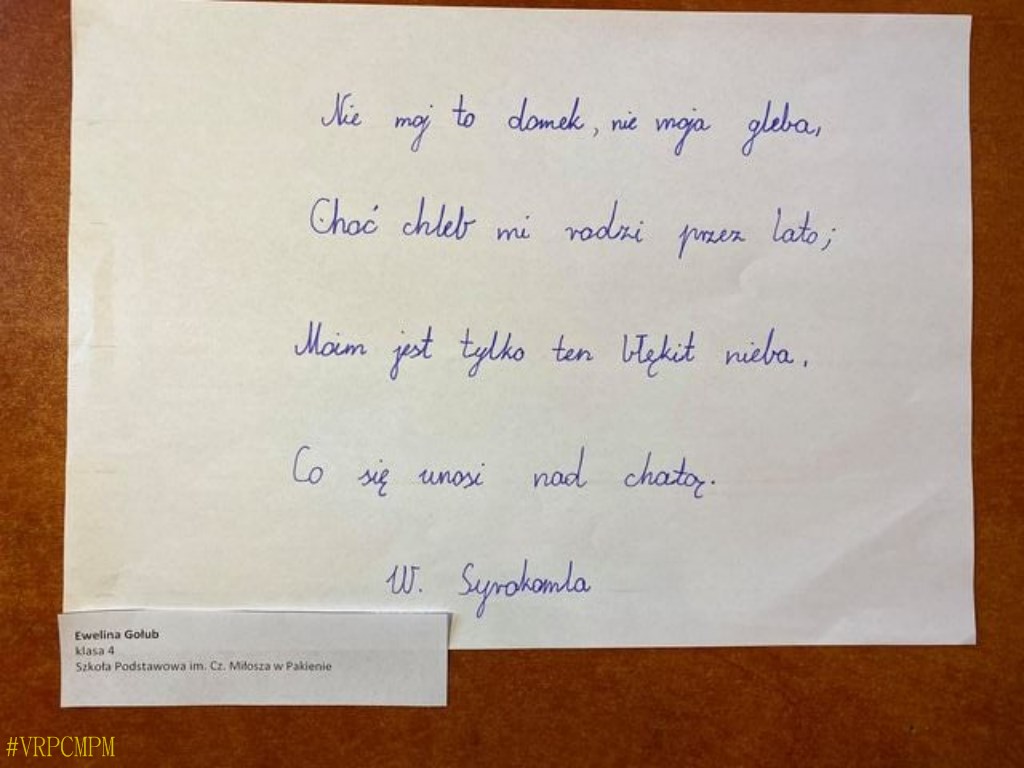 Nie moj to domek, nie moja gleba,
Choć chleb mi rodzi przez lato;
Moim jest tylko ten błękit nieba.
Co się unosi nad chatą.
W. Syrokomla
Ewelina Gołub
klasa 4
Szkoła Podstawowa im. Cz. Miłosza w Pakienie
#VRPCMPM